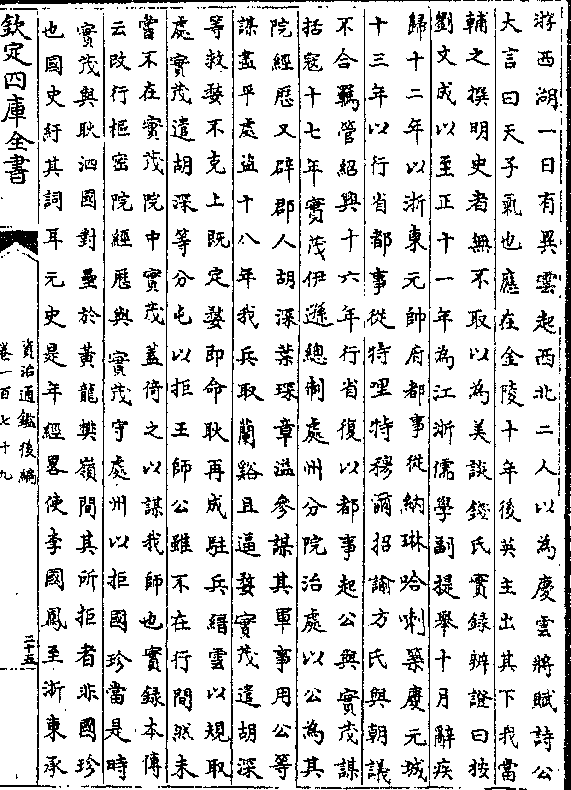 游西湖一日有異雲起西北二人以為慶雲將賦詩公
大言曰天子氣也應在金陵十年後英主出其下我當
輔之撰明史者無不取以為美談錢氏實錄辨證曰按
劉文成以至正十一年為江浙儒學副提舉十月辭疾
歸十二年以浙東元帥府都事從納琳哈喇築慶元城
十三年以行省都事從特哩特穆爾招諭方氏與朝議
不合羈管紹興十六年行省復以都事起公與實茂謀
括寇十七年實茂伊遜總制處州分院治處以公為其
院經歷又辟郡人胡深葉琛章溢參謀其軍事用公等
謀盡平處盜十八年我兵取蘭谿且逼婺實茂遣胡深
等救婺不克上既定婺即命耿再成駐兵縉雲以規取
處實茂遣胡深等分屯以拒王師公雖不在行間然未
嘗不在實茂院中實茂蓋倚之以謀我師也實錄本傳
云改行樞密院經歷與實茂守處州以拒國珍當是時
實茂與耿泗國對壘於黃龍樊嶺間其所拒者非國珍
也國史紆其詞耳元史是年經畧使李國鳳至浙東承
欽定四庫全書
資治通鑑後編
卷一百七十九
二十五